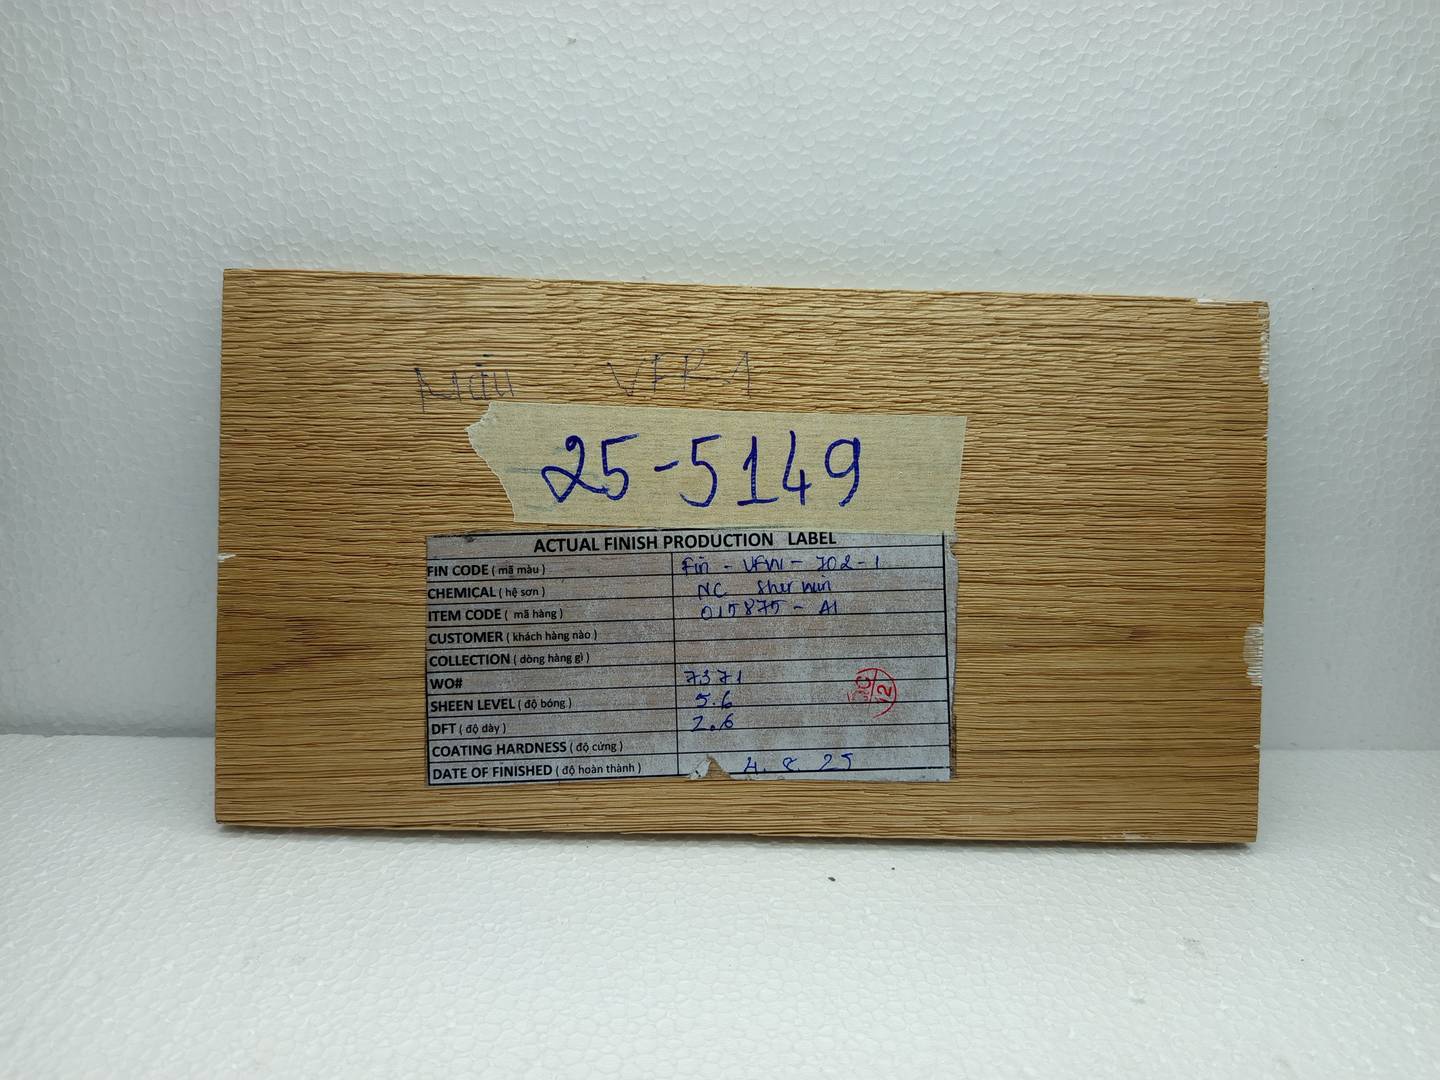 Mẫu VFR1
25-5149
ACTUAL FINISH PRODUCTION LABEL
FIN CODE ( mã màu ) Fin - VFW - 702 - 1
CHEMICAL ( hệ sơn ) NC Sher win
ITEM CODE ( mã hàng ) 015875 - A1
CUSTOMER ( khách hàng nào )
COLLECTION ( dòng hàng gì )
WO# 7371
SHEEN LEVEL ( độ bóng ) 5.6
DFT ( độ dày ) 2.6
COATING HARDNESS ( độ cứng )
DATE OF FINISHED ( độ hoàn thành ) 4. 8. 25